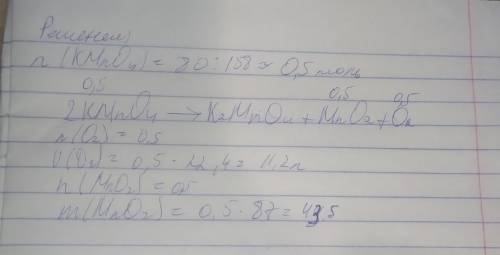 Решение
n(KMnO4) = 80:158 ≈ 0,5 моль
0,5 0,5 0,5
2KMnO4 → K2MnO4 + MnO2 + O2
n(O2) = 0,5
V(O2) = 0,5 · 22,4 = 11,2л
n(MnO2) = 0,5
m(MnO2) = 0,5 · 87 = 43,5